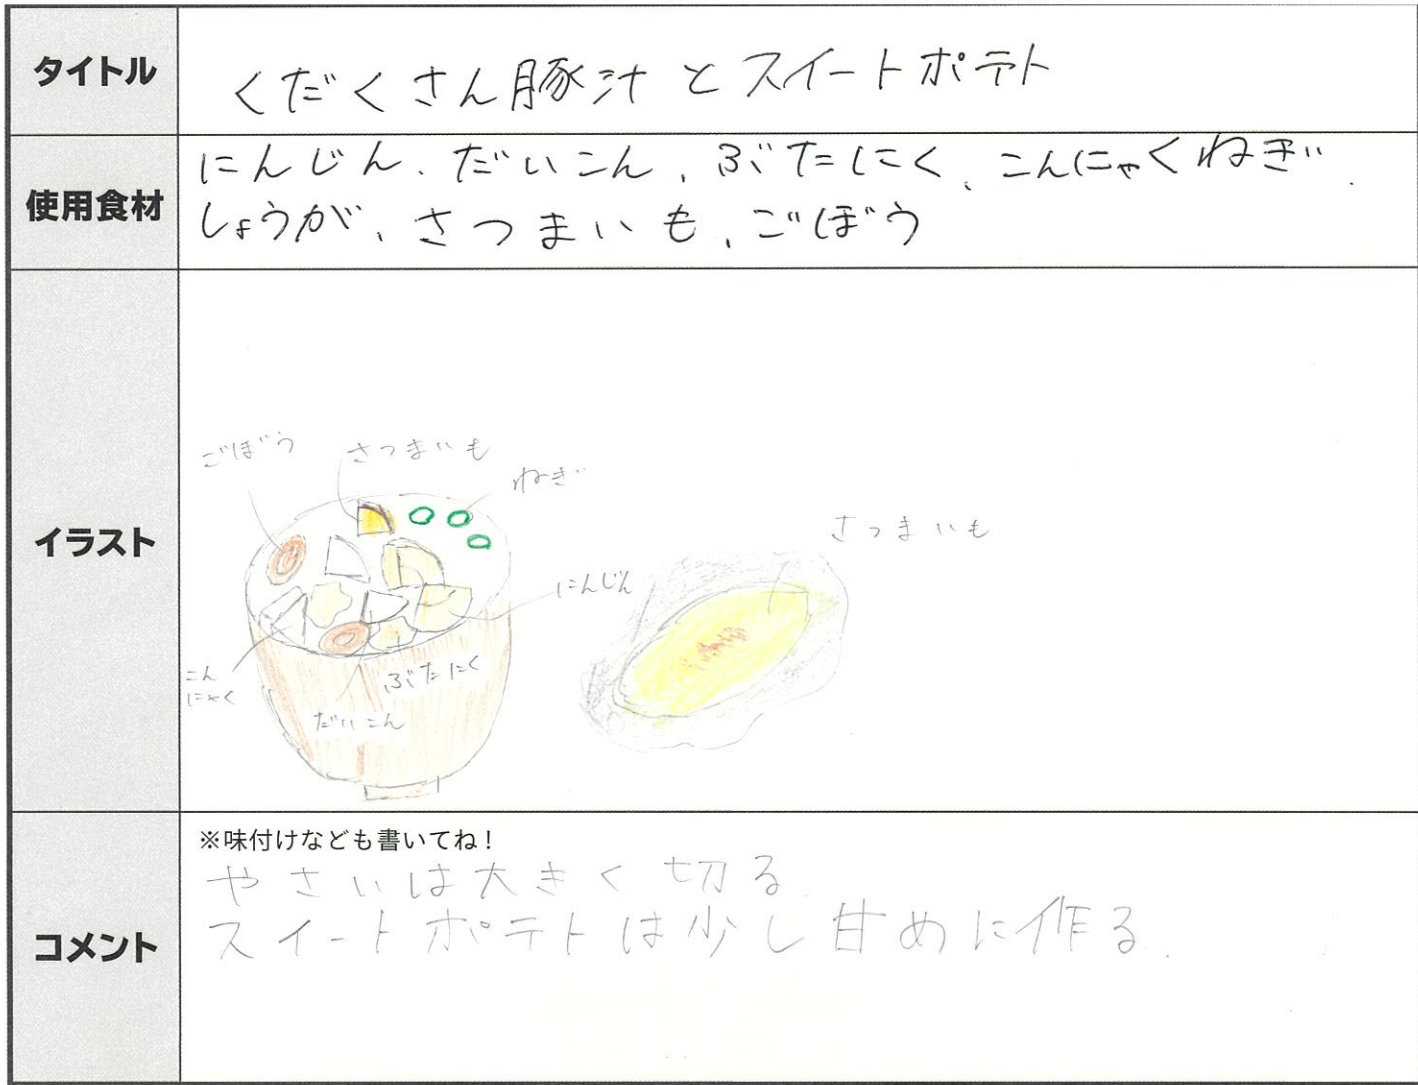 タイトル
くだくさん豚汁とスイートポテト
使用食材
にんじん、だいこん、ぶたにく、こんにゃくねぎ、
しょうが、さつまいも、ごぼう
イラスト
ごぼう
さつまいも
ねぎ
さつまいも
にんじん
こん
にゃく
ぶたにく
だいこん
コメント
※味付けなども書いてね!
やさいは大きく切る。
スイートポテトは少し甘めに作る。